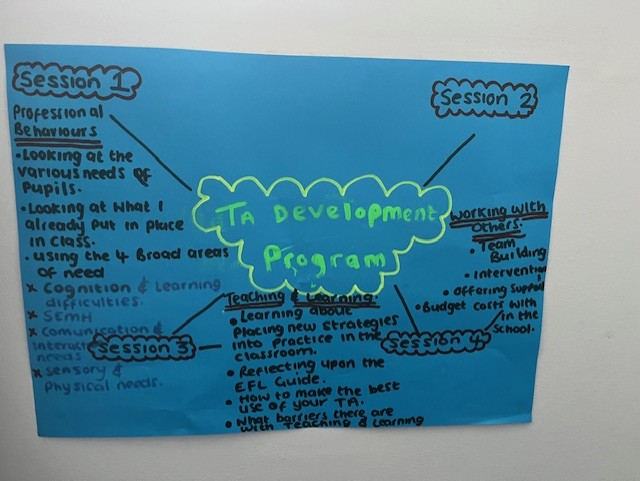 Session 1
Professional
Behaviours
• Looking at the
various needs of
Pupils.
• Looking at what I
already put in place
in class.
• using the 4 Broad areas
of need
x Cognition & Learning
difficulties.
x SEMH
x Comunication &
needs
x Sensory &
Physical needs.
Session 2
TA Development
Program
Working with
Others.
• Team
Building
• Intervention
• Offering Support
• Budget costs with
in the
School.
Session 3
Teaching & Learning.
• Learning about
Placing new strategies
into Practice in the
classroom.
• Reflecting upon the
EFL Guide.
• How to make the best
use of your TA.
• What barriers there are
with Teaching & Learning
Session 4